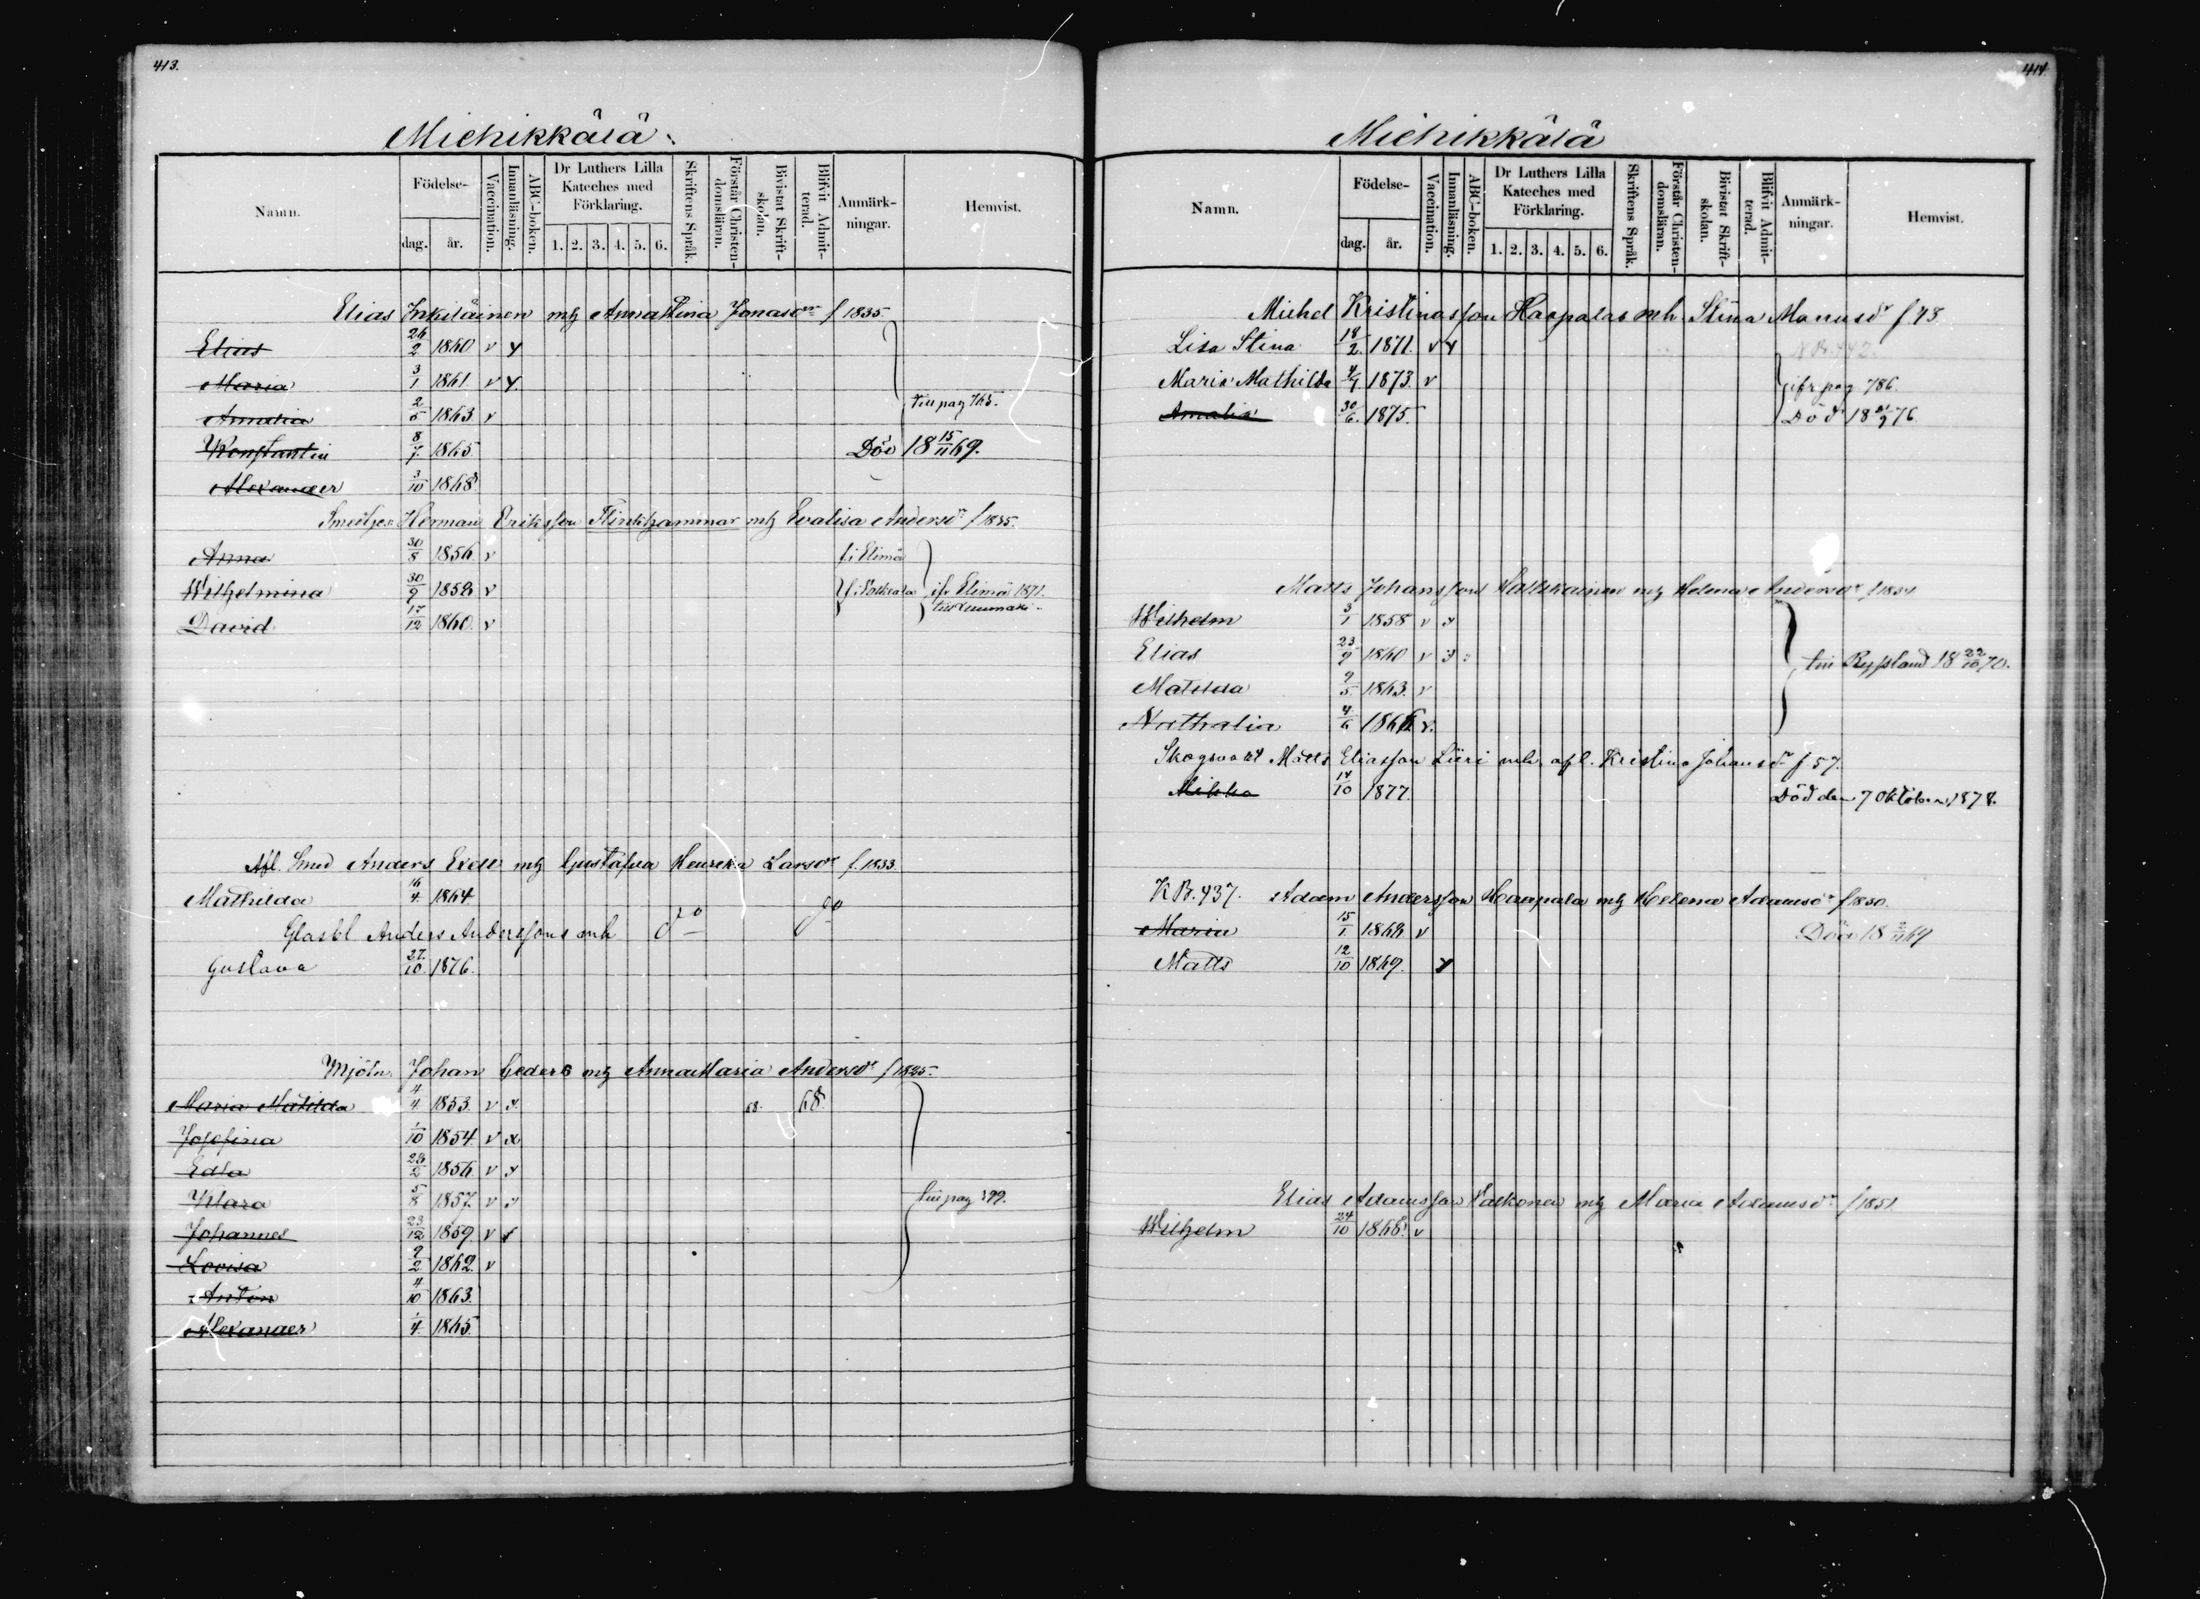 413.
Michikkälä
Namn. Födelse- dag. år. Vaccination. Innanläsning. ABC-boken. Dr Luthers Lilla Kateches med Förklaring. 1. 2. 3. 4. 5. 6. Skriftens Språk. Förstår Christen-domsläran. Bivistat Skrift-skolan. Blifvit Admit-terad. Anmärk-ningar. Hemvist.
Elias Inkiläinen mh Anna Stina Jonasdr f 1835.
Elias 26/2 1860 v y
Maria 3/1 1861 v y.
Amalia 2/5 1863 v till pag 765.
Konstantin 8/7 1865 Död 18 15/11 69.
Alexander 3/10 1868
Herman Eriksson Flinkhammar mh Evalisa Andersdr f 1835.
Anna 30/8 1856 v f. i Elimä
Wilhelmina 30/9 1858 v ifr. Elimä 1871.
David 17/12 1860. v till Luumäki.
Afl. Smed Anders mh Gustafva Henrika Larsdr f. 1833.
Mathilda 16/4 1864
Glasbl Anders Anderssons mh
Gustava 27/10 1876.
Mjöln. Johan Geders mh Anna Maria Andersdr f 1825.
Maria Matilda 4/4 1853. v y. 68. 68.
Josefina 1/10 1854 v x
Edla 26/2 1856 v y
Klara 5/8 1857. v y till pag 199.
Johannes 23/12 1859 v y
Lovisa 9/2 1862. v
Anton 4/10 1863.
Alexander 1/4 1865
414.
Michikkälä
Namn. Födelse- dag. år. Vaccination. Innanläsning. ABC-boken. Dr Luthers Lilla Kateches med Förklaring. 1. 2. 3. 4. 5. 6. Skriftens Språk. Förstår Christen-domsläran. Bivistat Skrift-skolan. Blifvit Admit-terad. Anmärk-ningar. Hemvist.
Michel Kristinasson Haapalas mh. Stina Manusdr f 48
Lisa Stina 18/2 1871. v y K Br. 442.
Maria Mathilda 4/1 1873. v ifr pag 786.
Amalia 30/6 1875. Död 18 76.
Matts Johansson mh Helena Andersdr f 1834
Wilhelm 3/1 1858 v y
Elias 23/9 1860 v y till Ryssland 18 22/10 70.
Matilda 9/5 1863. v
Nathalia 4/6 1866 v.
Skogsvakt Matts Eliasson Liiri mh. afl. Kristina Johansdr f. 57.
Mikko 14/10 1877. Död den 7 Oktober 1878.
K Br. 437. Adam Andersson Haapala mh Helena Adamsdr f 1830.
Maria 15/1 1862 v Död 18 2/11 69
Matts 12/10 1869. y
Elias Adamsson Valkonen mh Maria Adamsdr f 1851
Wilhelm 24/10 1868. v